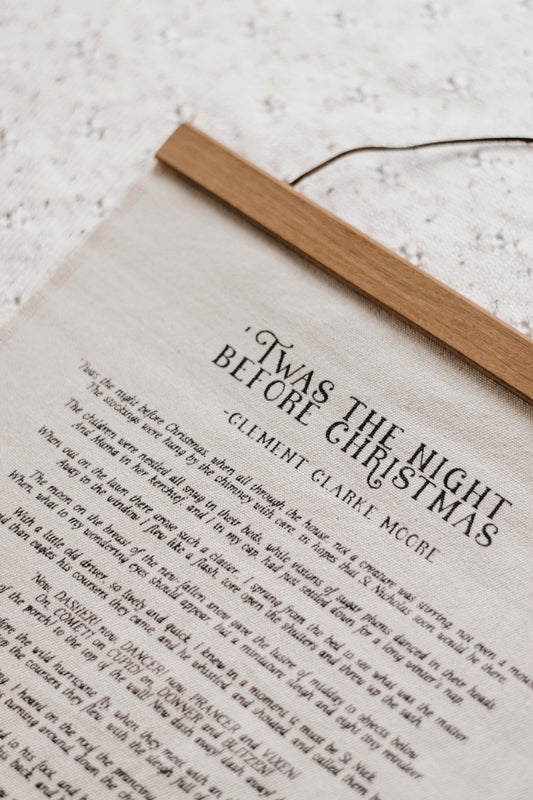 'TWAS THE NIGHT
BEFORE CHRISTMAS
-CLEMENT CLARKE MOORE
'Twas the night before Christmas, when all through the house, not a creature was stirring, not even a mous
The stockings were hung by the chimney with care, in hopes that St. Nicholas soon would be there.
The children were nestled all snug in their beds, while visions of sugar plums danced in their heads.
And Mama in her kerchief, and I in my cap, had just settled down for a long winter's nap.
When out on the lawn there arose such a clatter, I sprang from the bed to see what was the matter.
Away to the window I flew like a flash, tore open the shutters and threw up the sash.
The moon on the breast of the new-fallen snow gave the lustre of midday to objects below
When, what to my wondering eyes should appear, but a miniature sleigh and eight tiny reindeer
With a little old driver, so lively and quick, I knew in a moment it must be St Nick.
than eagles his coursers they came, and he whistled, and shouted, and called them
Now, DASHER! now, DANCER! now, PRANCER and VIXEN!
On, COMET! on CUPID! on, DONNER and BLITZEN!
of the porch! to the top of the wall! Now dash away! dash away!
the wild hurricane fly, when they meet with an
the coursers they flew, with the sleigh full of
I heard on the roof the prancing
turning around, down the ch